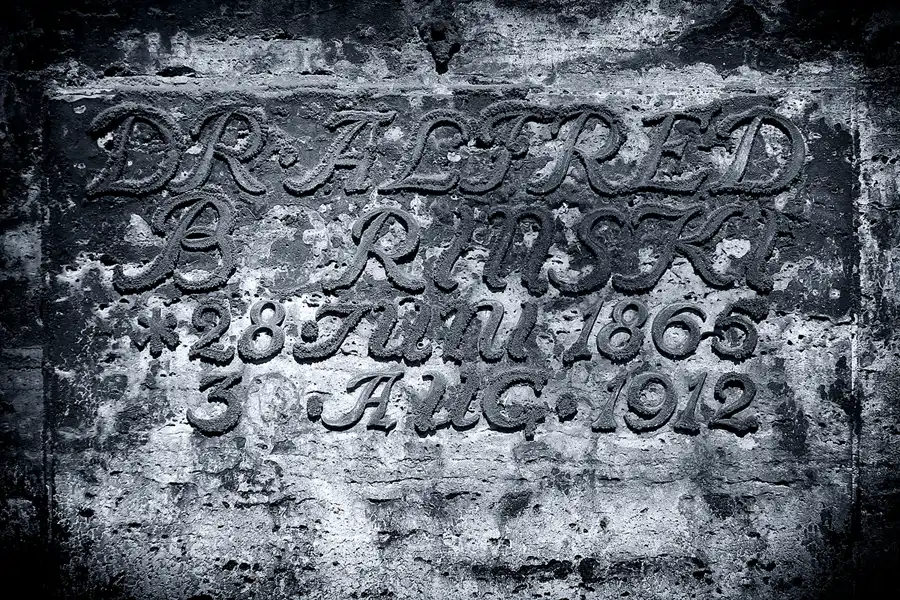 DR. ALFRED
B RINSKI
* 28. JUNI 1865
3 . AUG. 1912